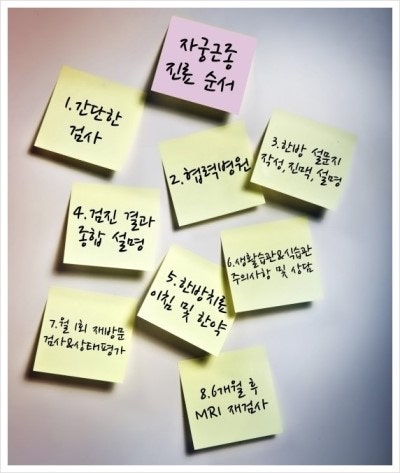 자궁근종
진료 순서
1.간단한
검사
2.협력병원
3.한방 설문지
작성,진맥,설명
4.검진 결과
종합 설명
5.한방치료
이침 및 한약
6.생활습관&식습관
주의사항 및 상담
7.월 1회 재방문
검사&상태평가
8.6개월 후
MRI 재검사